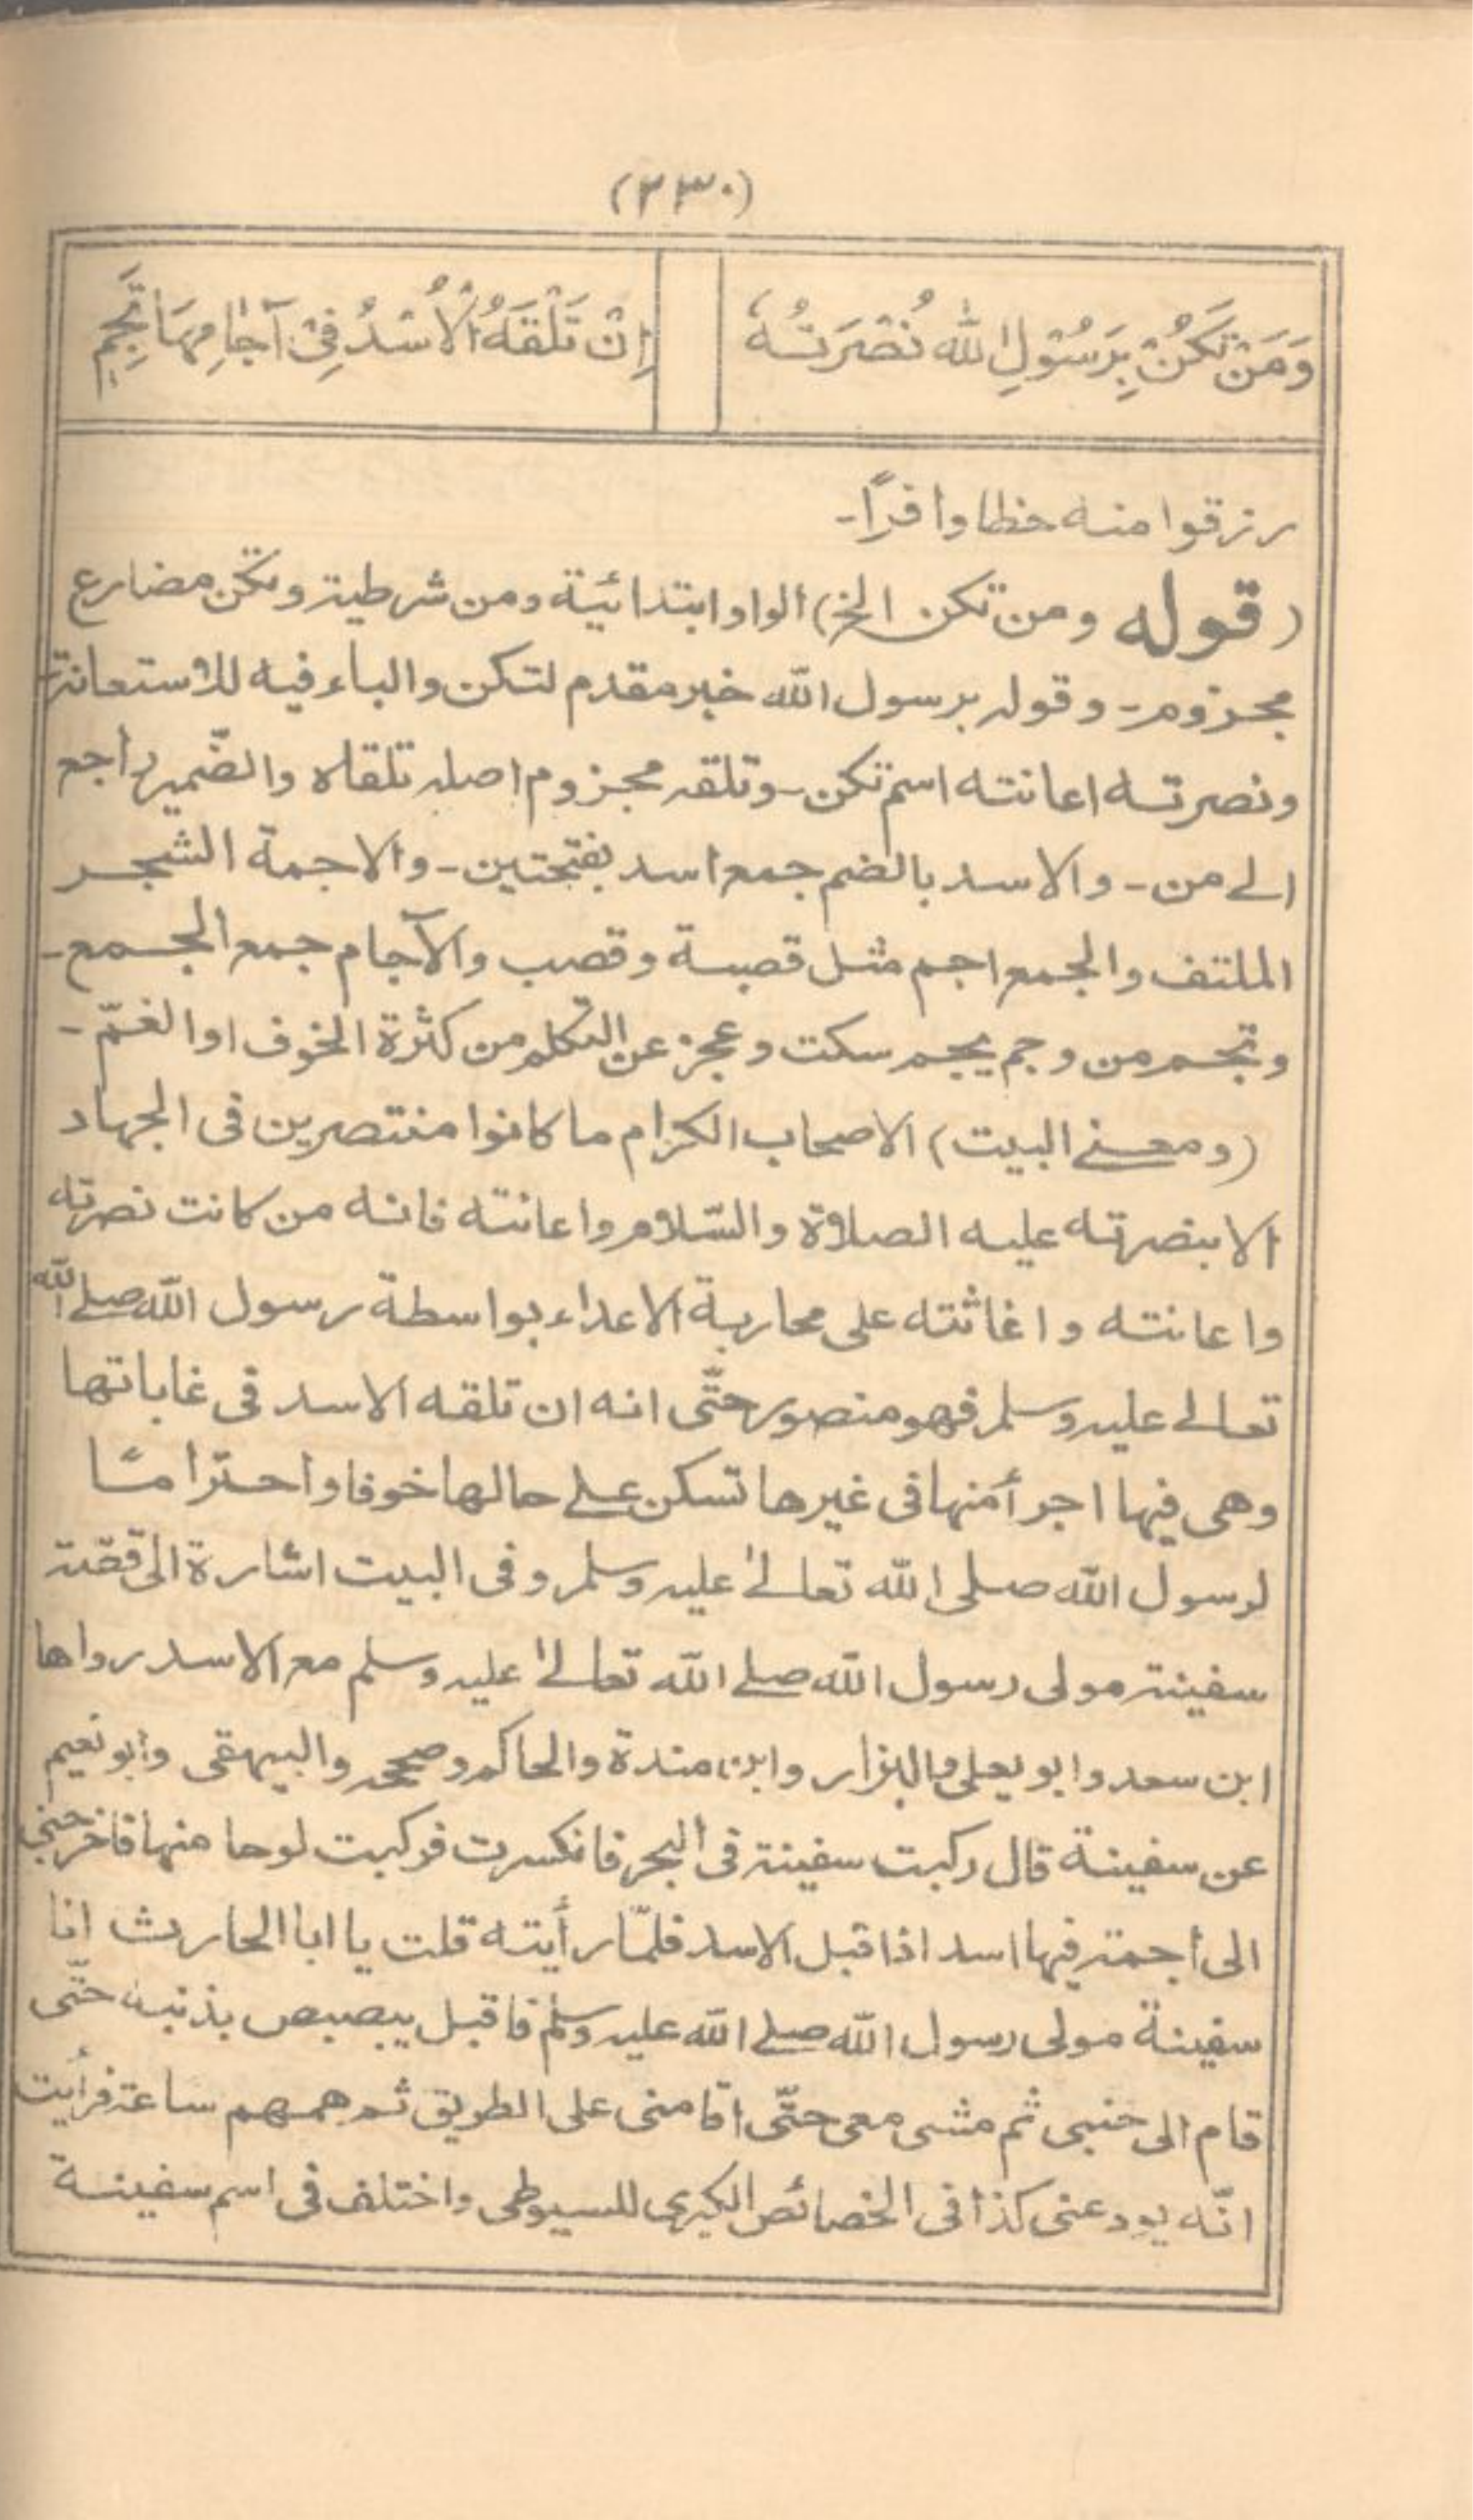 (٢٣٠)
وَمَنْ تَكُنْ بِرَسُوْلِ اللّٰه نُصْرَتُهٗ
إِنْ تَلْقَهُ الْأُسْدُ فِىْ آجَامِهَا تَجِمِ
رزقوا منه حظا وافرًا۔
(قوله ومن تكن الخ) الواو ابتدائيّة ومن شرطية وتكن مضارع
مجزوم۔ وقوله برسول الله خبر مقدم لتكن والباء فيه للاستعانة
ونصرته اعانته اسم تكن۔ وتلقه مجزوم اصله تلقاه والضّمير راجع
الے من۔ والاسد بالضم جمع اسد بفتحتين۔ والاجمة الشجر
الملتف والجمع اجم مثل قصبة وقصب والآجام جمع الجمع۔
وتجم من وجم يجم سكت وعجز عن التكلم من كثرة الخوف او الغمّ۔
(ومعنے البيت) الاصحاب الكرام ما كانوا منتصرين فى الجهاد
الا بنصرته عليه الصلاة والسّلام واعانته فانه من كانت نصرته
واعانته واغاثته على محاربة الاعداء بواسطة رسول الله صلے الله
تعالے عليه وسلم فهو منصور حتّى انه ان تلقه الاسد فى غاباتها
وهى فيها اجرأ منها فى غيرها تسكن علے حالها خوفا واحتراما
لرسول الله صلى الله تعالےٰ عليه وسلم وفى البيت اشارة الى قصّة
سفينة مولى رسول الله صلے الله تعالےٰ عليه وسلم مع الاسد رواها
ابن سعد وابو يعلى والبزار وابن مندة والحاكم وصححه والبيهقى وابو نعيم
عن سفينة قال ركبت سفينة فى البحر فانكسرت فركبت لوحا منها فاخرجنى
الى أجمة فيها اسد اذا قبل الاسد فلمّا رأيته قلت يا ابا الحارث انا
سفينة مولى رسول الله صلے الله عليه وسلم فاقبل يبصبص بذنبه حتّى
قام الى جنبى ثم مشى معى حتّى اقامنى على الطريق ثم همهم ساعة فرأيت
انّه يودعنى كذا فى الخصائص الكبرى للسيوطى واختلف فى اسم سفينة